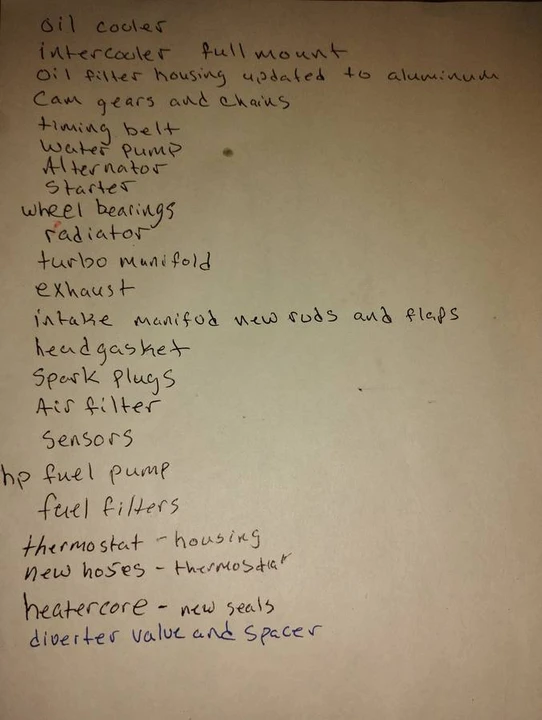 oil cooler
intercooler full mount
oil filter housing updated to aluminum
Cam gears and chains
timing belt
water pump
Alternator
Starter
wheel bearings
radiator
turbo manifold
exhaust
intake manifod new rods and flaps
headgasket
Spark plugs
Air filter
Sensors
hp fuel pump
fuel filters
thermostat - housing
new hoses - thermostat
heatercore - new seals
diverter value and spacer